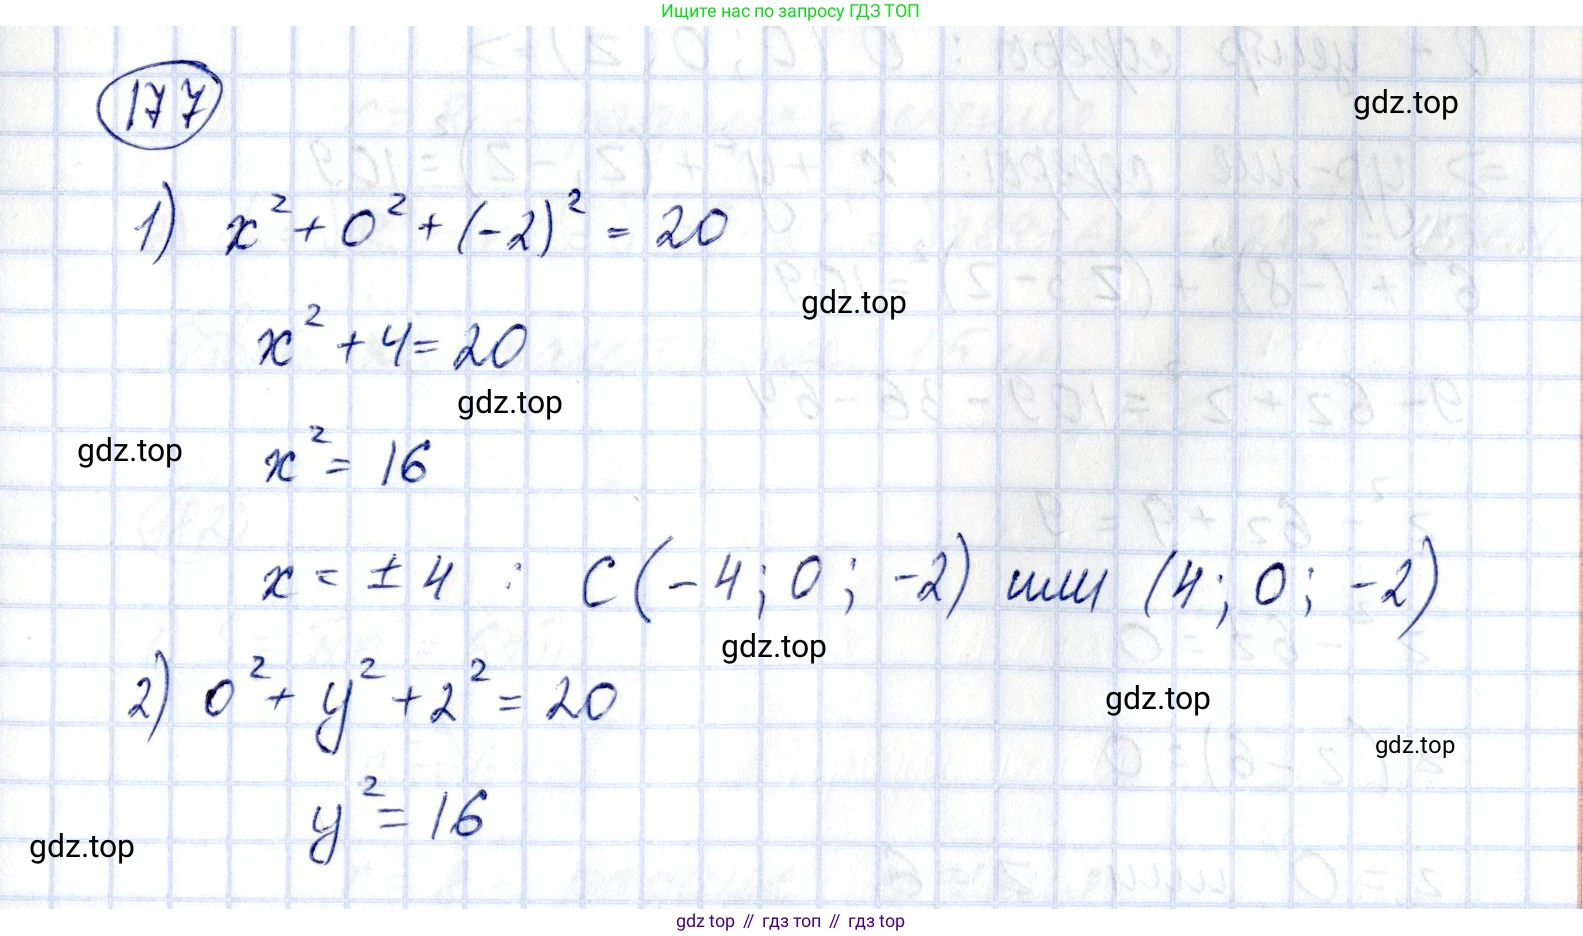 Ищите нас по запросу ГДЗ ТОП
177
gdz.top
1) x² + 0² + (-2)² = 20
gdz.top
x² + 4 = 20
gdz.top
gdz.top
x² = 16
x = ± 4 : C (-4; 0; -2) или (4; 0; -2)
gdz.top
2) 0² + y² + 2² = 20
gdz.top
gdz.top
y² = 16
gdz.top
gdz top // гдз топ // гдз top